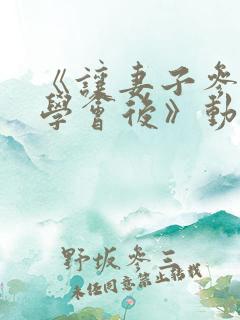 《讓妻子參
學會後》動
野坂參三
未经同意禁止转载